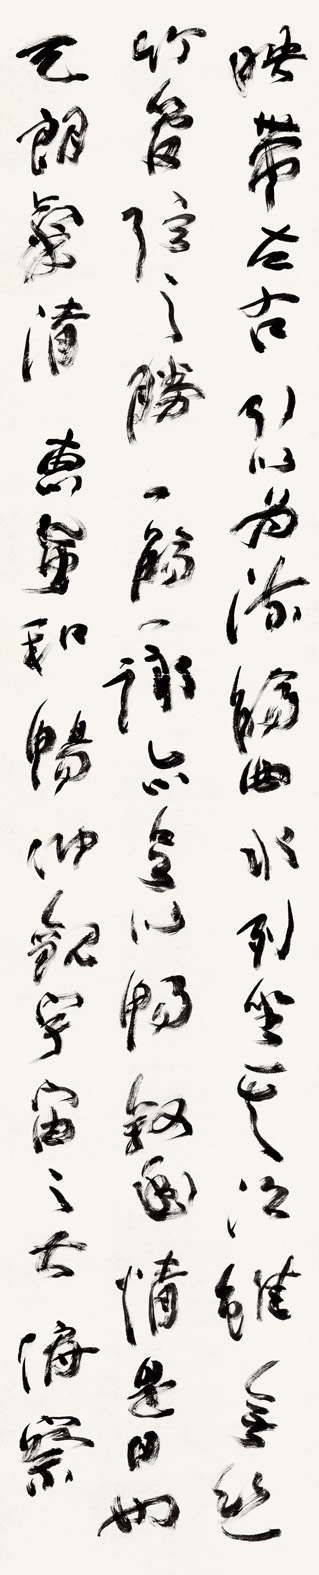 映帶左右引以為流觴曲水列坐其次雖無絲
竹管弦之勝一觴一詠亦足以暢敘幽情是日也
天朗氣清惠風和暢仰觀宇宙之大俯察